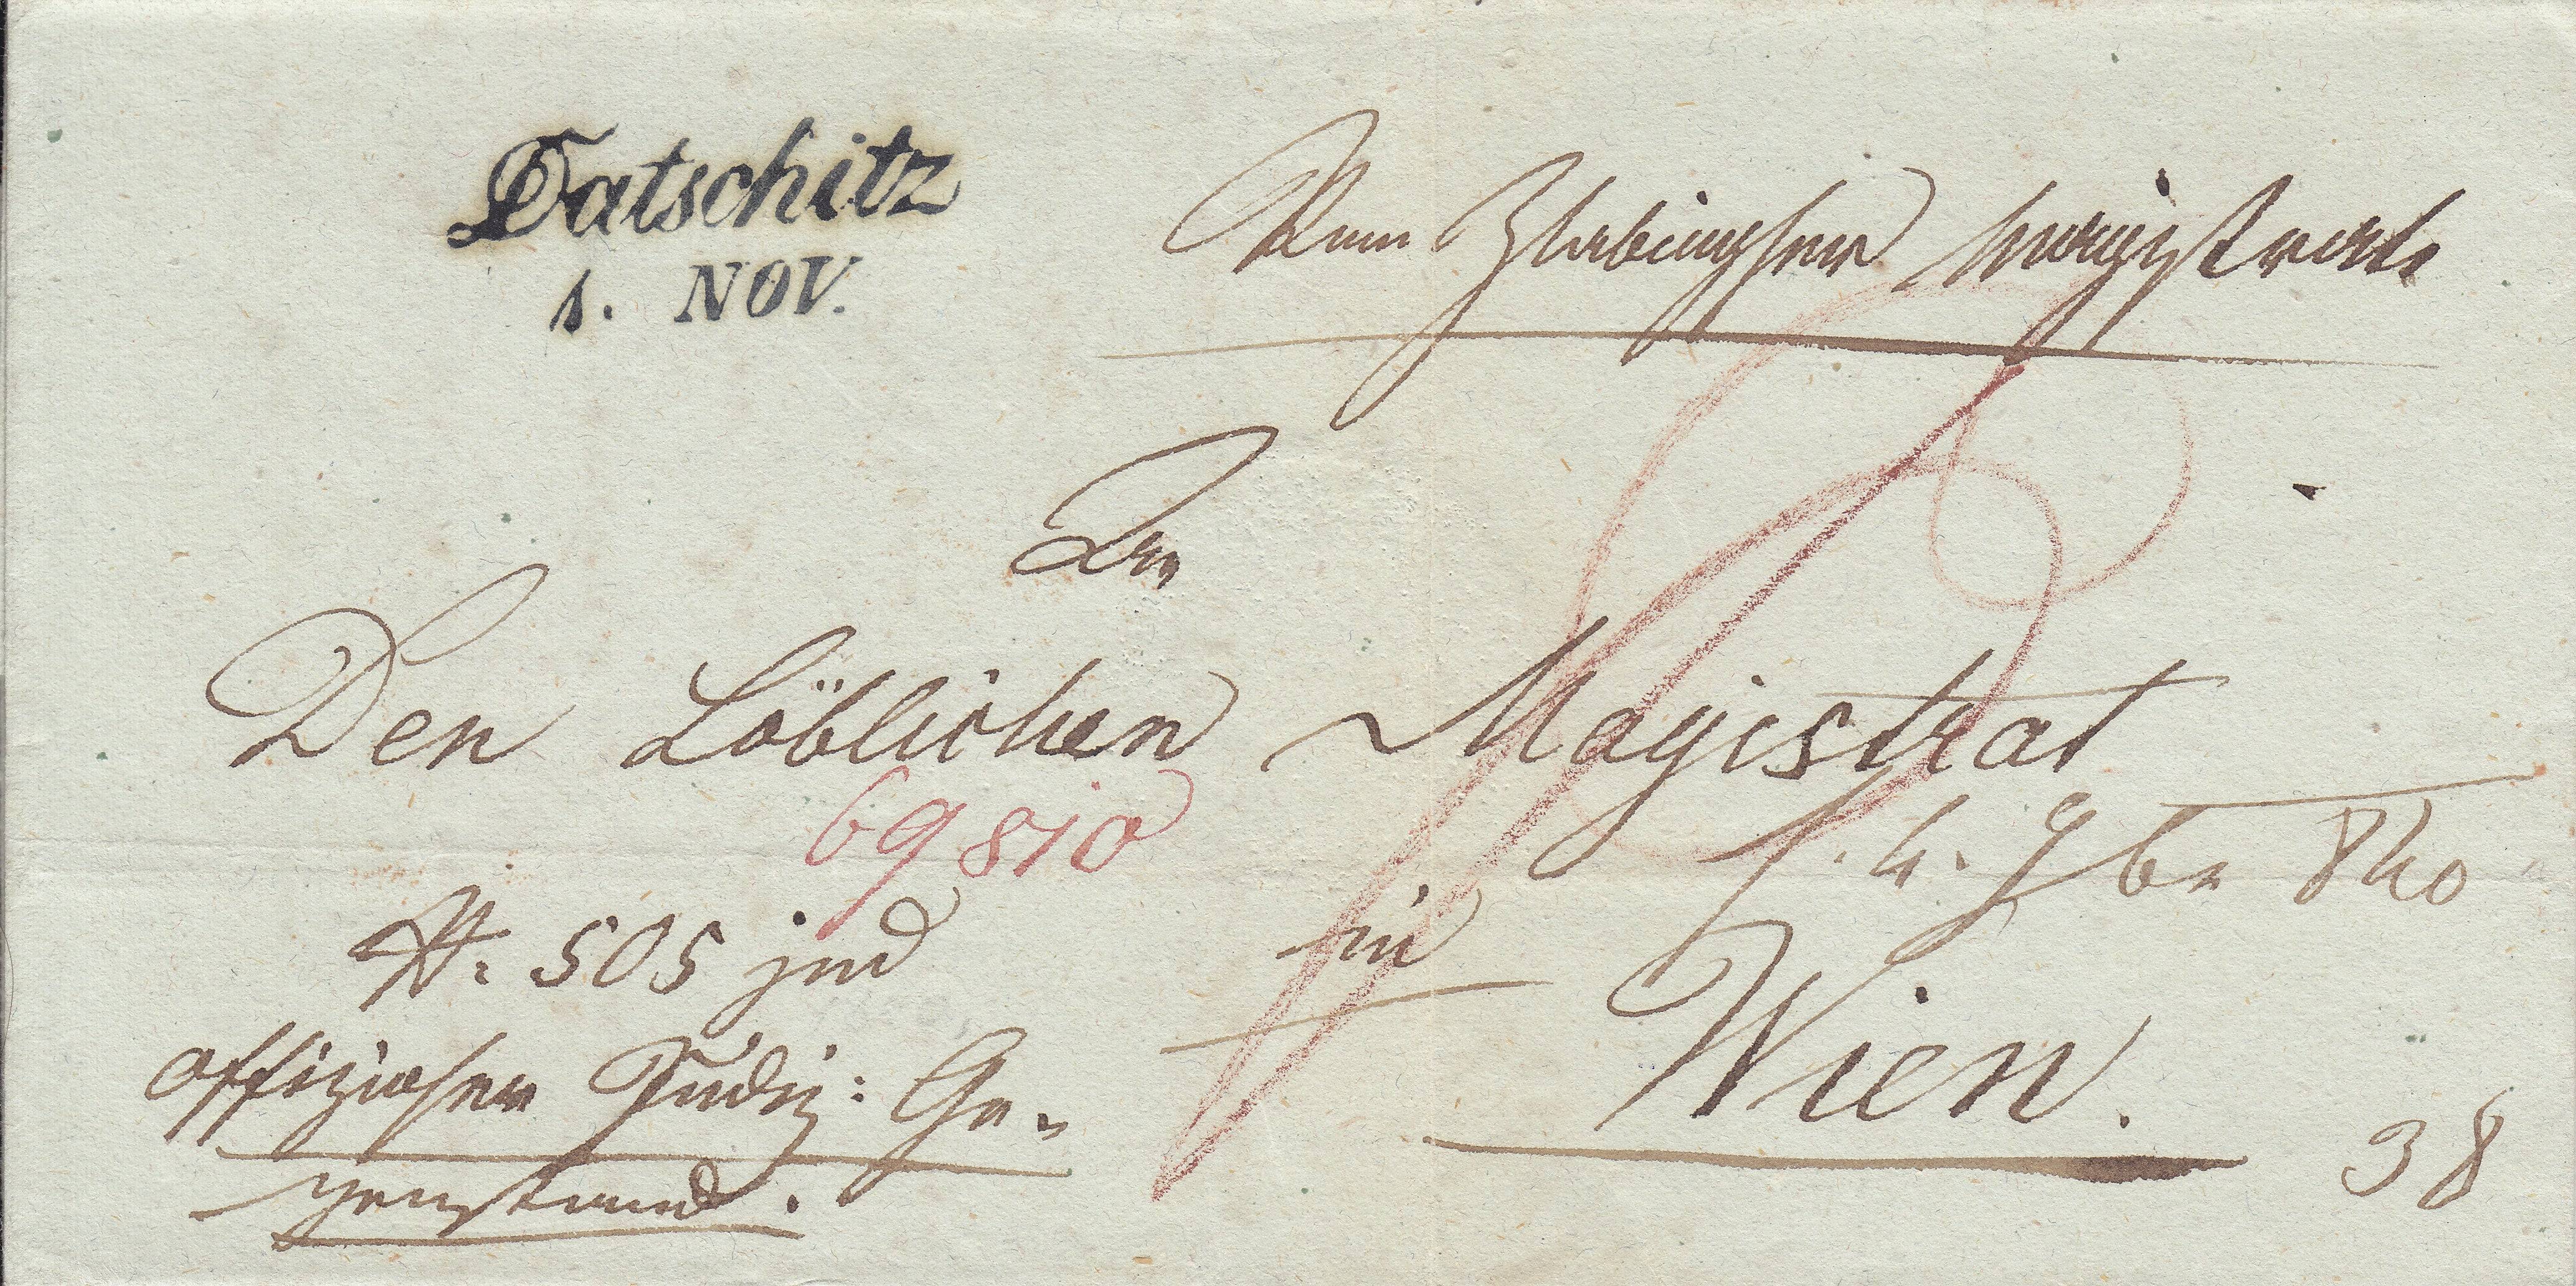 Datschitz
1. NOV.
Vom Zlabingser Magistrate
An
Den Löblichen Magistrat
69810
9br 840
N: 505 jud
in
offizioser Judiz: Ge=
Wien.
genstand.
38